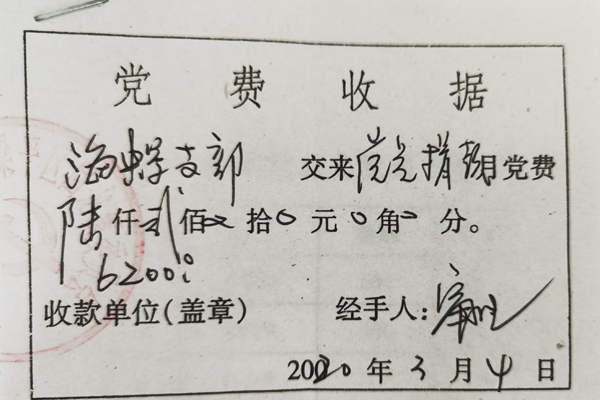 党费收据
海螺支部 交来党员捐款月党费
陆仟贰佰零拾0元0角0分。
6200元
收款单位(盖章) 经手人:
2020年3月4日